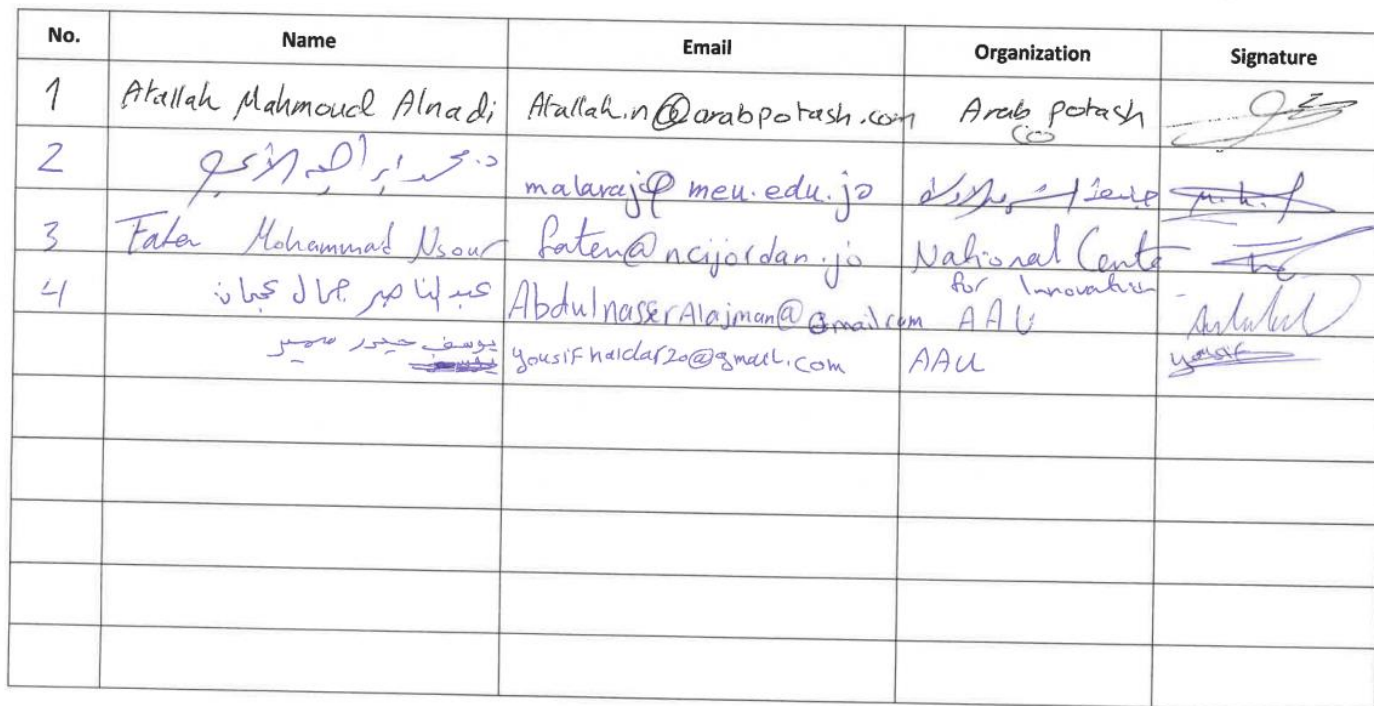 No. Name Email Organization Signature
1 Atallah Mahmoud Alnadi Atallah.n@arabpotash.com Arab potash
2 د. محمد ابراهيم malaraj@meu.edu.jo جامعة الشرق الأوسط
3 Faten Mohammad Nsour faten@ncijordan.jo National Cente
for Innovation
4 عبد الناصر جمال عجمان AbdulnasserAlajman@gmail.com AAU
يوسف حيدر سمير yousifhaidar20@gmail.com AAU yousif